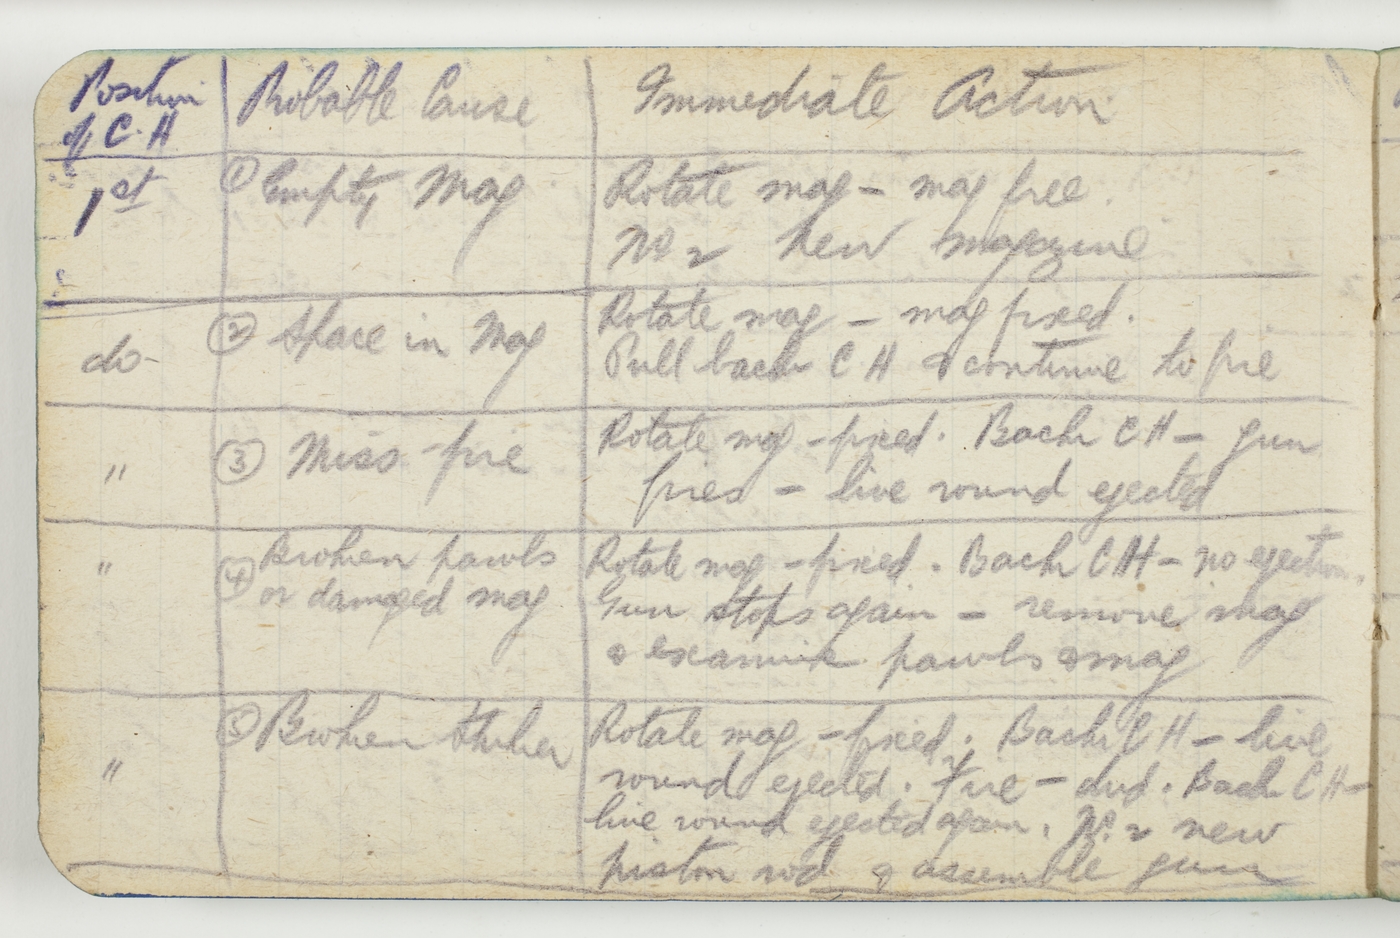 Position Probable Cause Immediate Action
of C.H
1st ① Empty Mag Rotate mag - mag free.
No 2 new magazine
do- ② Space in Mag Rotate mag - mag fixed.
Pull back C H & continue to fire
" ③ Miss-fire Rotate mag - fixed. Back C H - gun
fires - live round ejected
" ④ Broken pawls Rotate mag - fixed. Back C H - no ejection.
or damaged mag Gun stops again - remove mag
& examine pawls & mag
" ⑤ Broken Striker Rotate mag - fixed. Back C H - live
round ejected. Fire - dud. Back C H -
live round ejected again. No. 2 new
piston rod & assemble gun